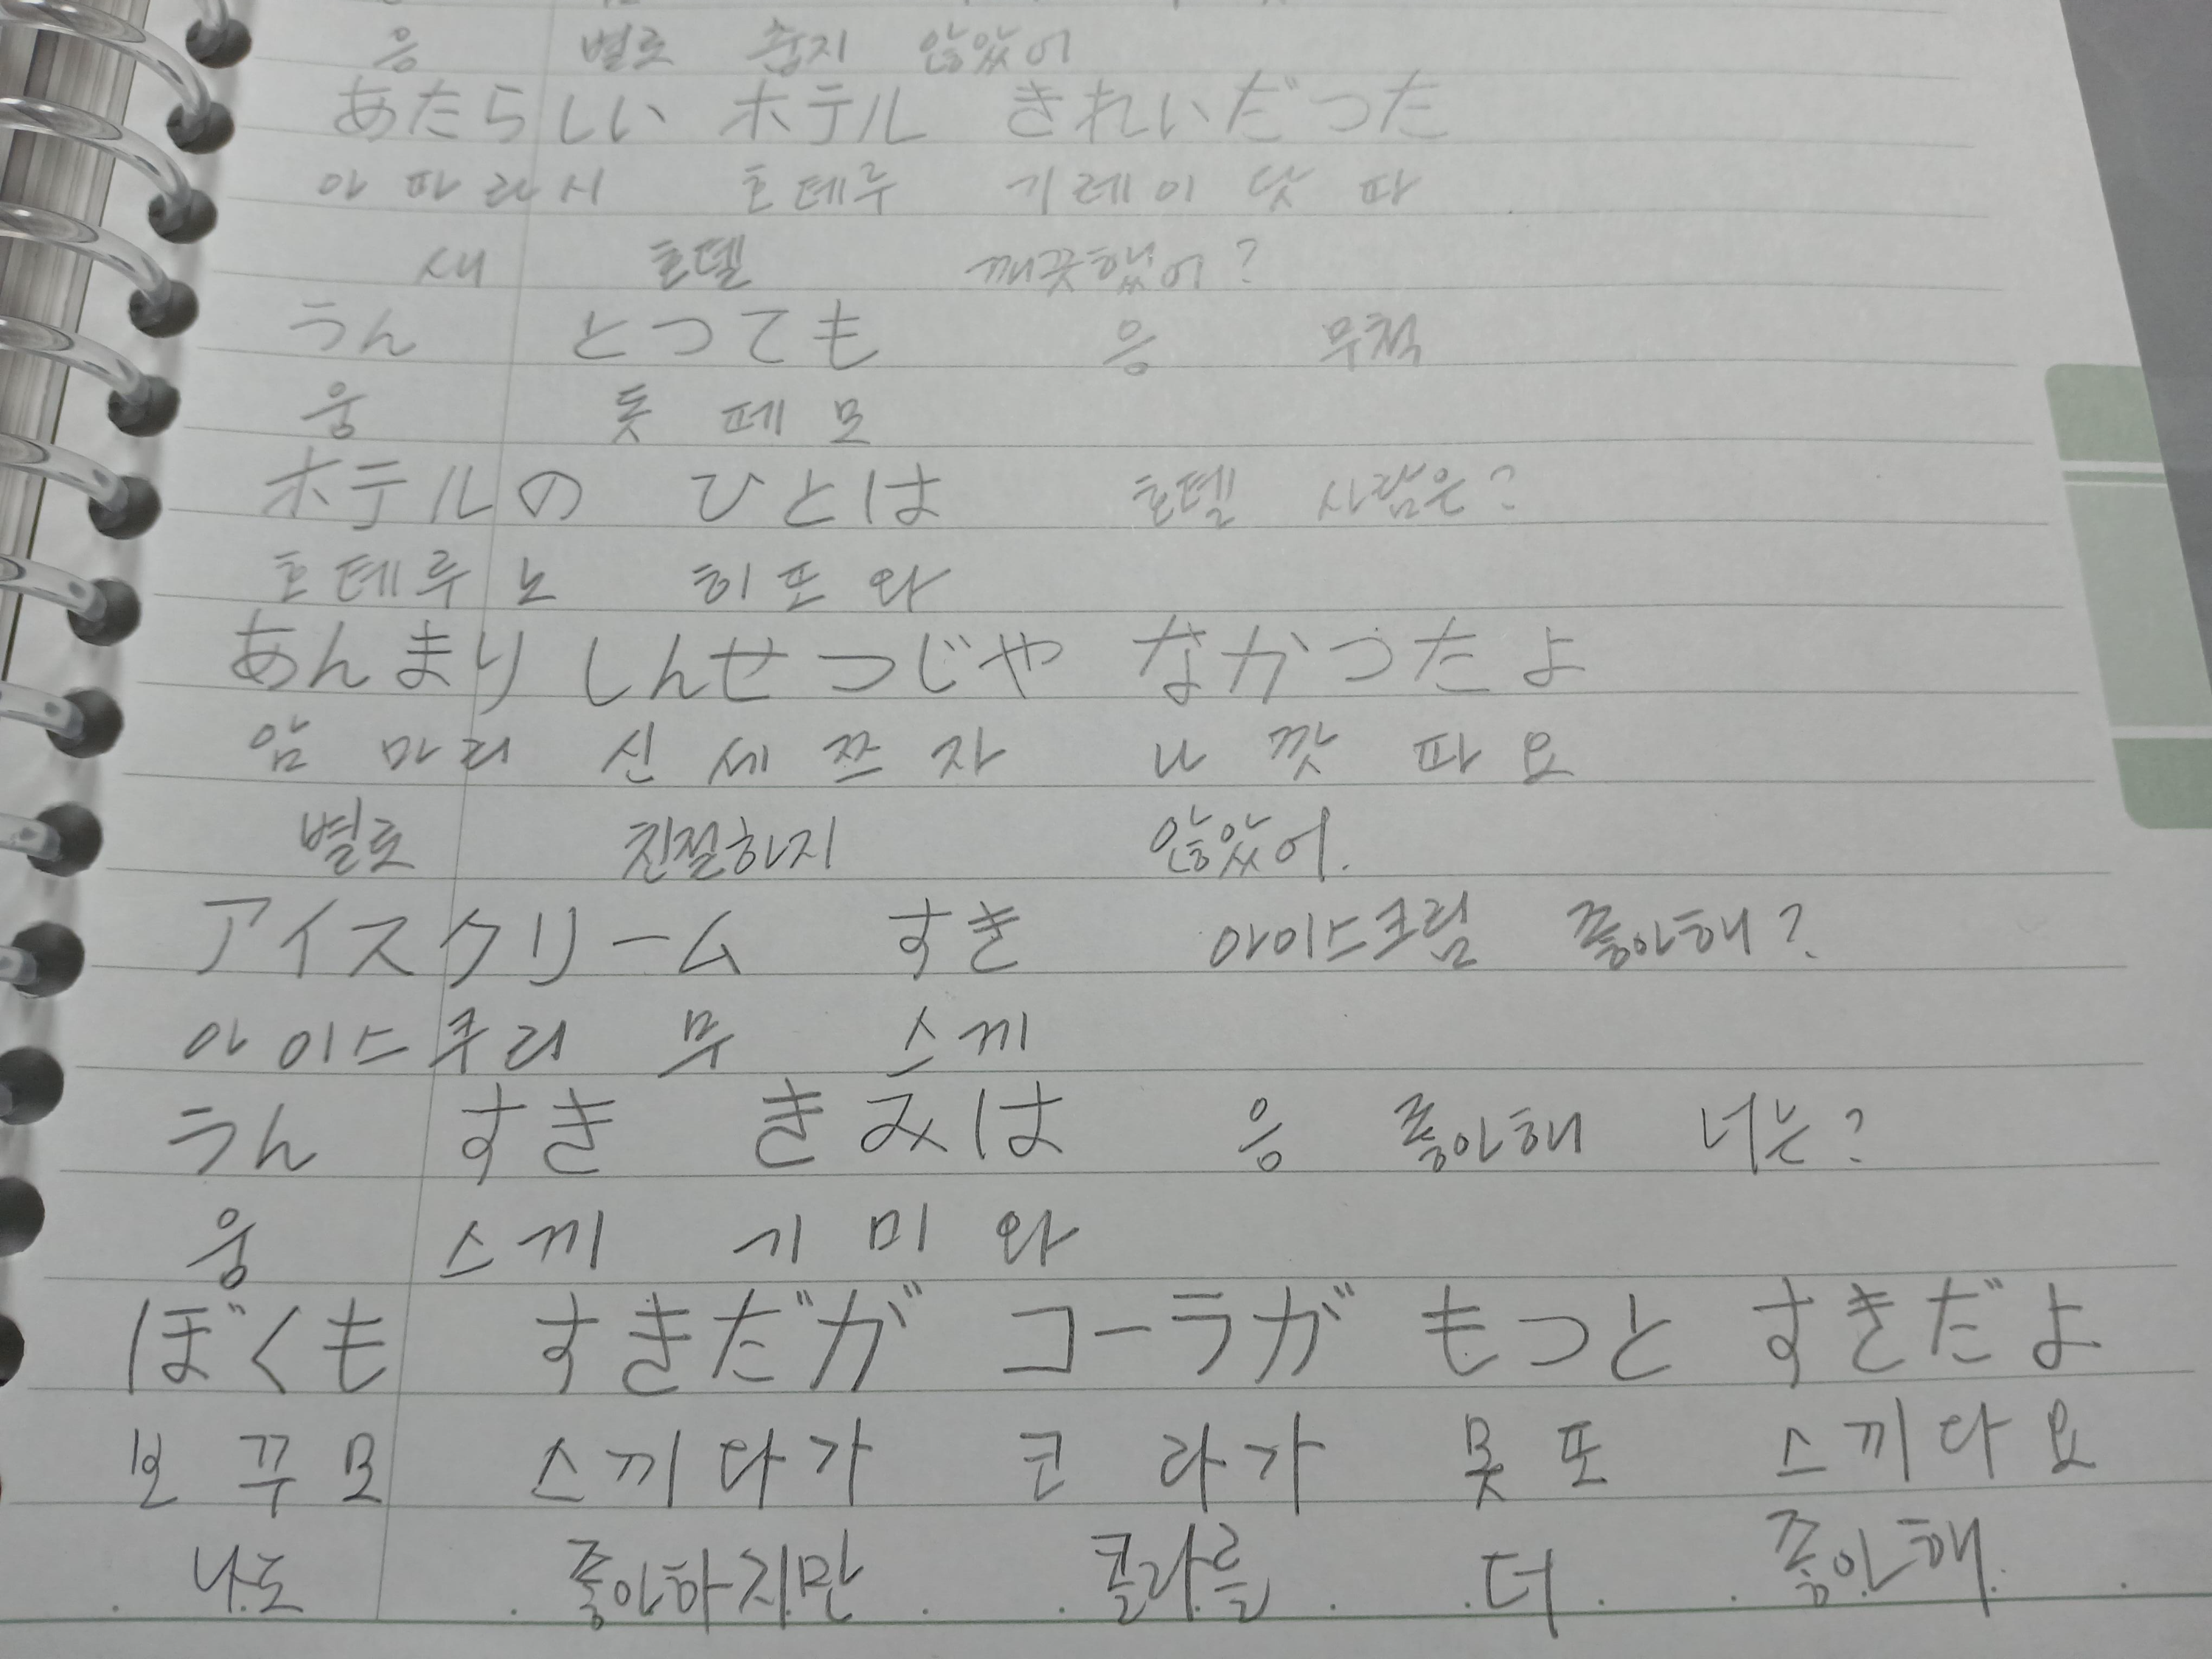 응 별로 춥지 않았어
あたらしい ホテル きれいだつた
아따라시 호테루 기레이닷따
새 호텔 깨끗했어?
うん とつても 응 무척
웅 톳떼모
ホテルの ひとは 호텔 사람은?
호테루노 히또와
あんまり しんせつじや なかつたよ
암마리 신세쯔쟈 나깟따요
별로 친절하지 않았어.
アイスクリーム すき 아이스크림 좋아해?
아이스쿠리무 스끼
うん すき きみは 응 좋아해 너는?
웅 스끼 기미와
ぼくも すきだが コーラが もつと すきだよ
보꾸모 스끼다가 코라가 못또 스끼다요
나도 좋아하지만 콜라를 더 좋아해.